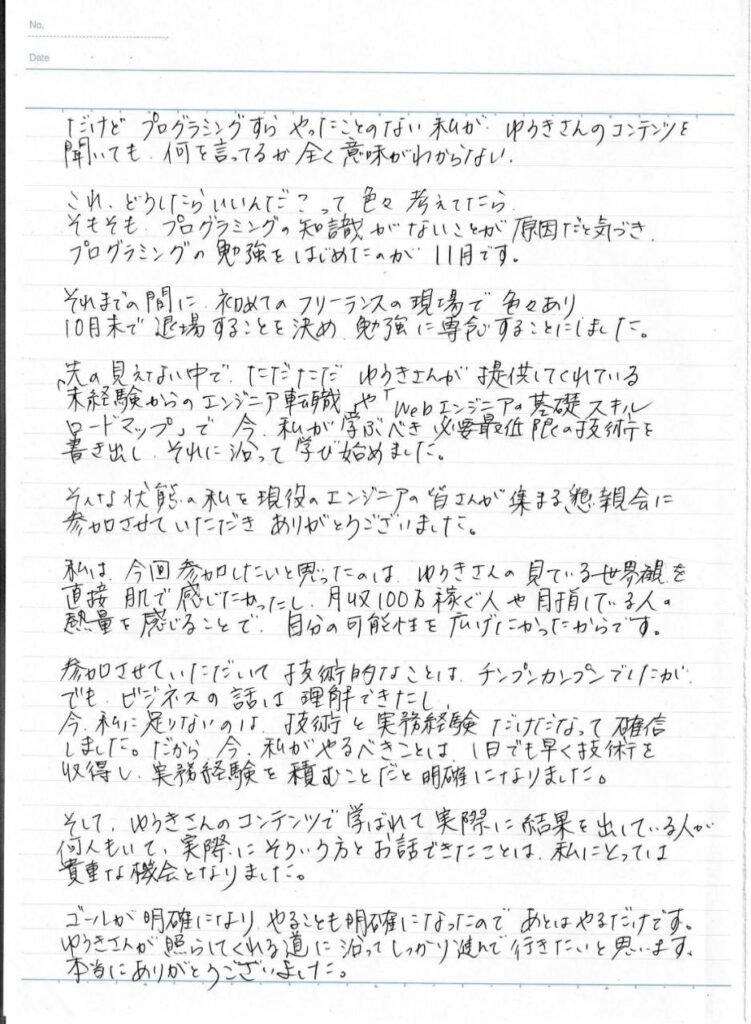 No.
Date
だけど プログラミングすら やったことのない 私が、ゆうきさんのコンテンツを
聞いても、何を言ってるか 全く意味がわからない。
これ、どうしたらいいんだこって 色々 考えてたら、
そもそも、プログラミングの知識がないことが 原因だと気づき、
プログラミングの 勉強を はじめたのが 11月です。
それまでの間に、初めての フリーランスの現場で 色々あり
10月末で 退場することを決め、勉強に専念することにしました。
先の見えない中で、ただただ ゆうきさんが 提供してくれている
「未経験からのエンジニア転職」や「Webエンジニアの基礎スキル
ロードマップ」で 今、私が学ぶべき 必要最低限の技術を
書き出し、それに沿って 学び始めました。
そんな状態の私を現役のエンジニアの皆さんが集まる、懇親会に
参加させていただき ありがとうございました。
私は、今回参加したいと思ったのは、ゆうきさんの見ている世界観を
直接 肌で感じたかったし、月収100万稼ぐ人や目指している人の
熱量を感じることで、自分の可能性を広げたかったからです。
参加させていただいて 技術的なことは、チンプンカンプンでしたが、
でも、ビジネスの話は 理解できたし、
今、私に足りないのは、技術と実務経験 だけだなって 確信
しました。だから、今、私がやるべきことは、1日でも早く技術を
収得し、実務経験を 積むことだと明確になりました。
そして、ゆうきさんのコンテンツで 学ばれて 実際に結果を出している人が
何人もいて、実際にそういう方とお話できたことは、私にとっては
貴重な機会となりました。
ゴールが 明確になり、やることも明確になったので あとはやるだけです。
ゆうきさんが 照らしてくれる道に 沿って しっかり進んで行きたいと思います。
本当にありがとうございました。